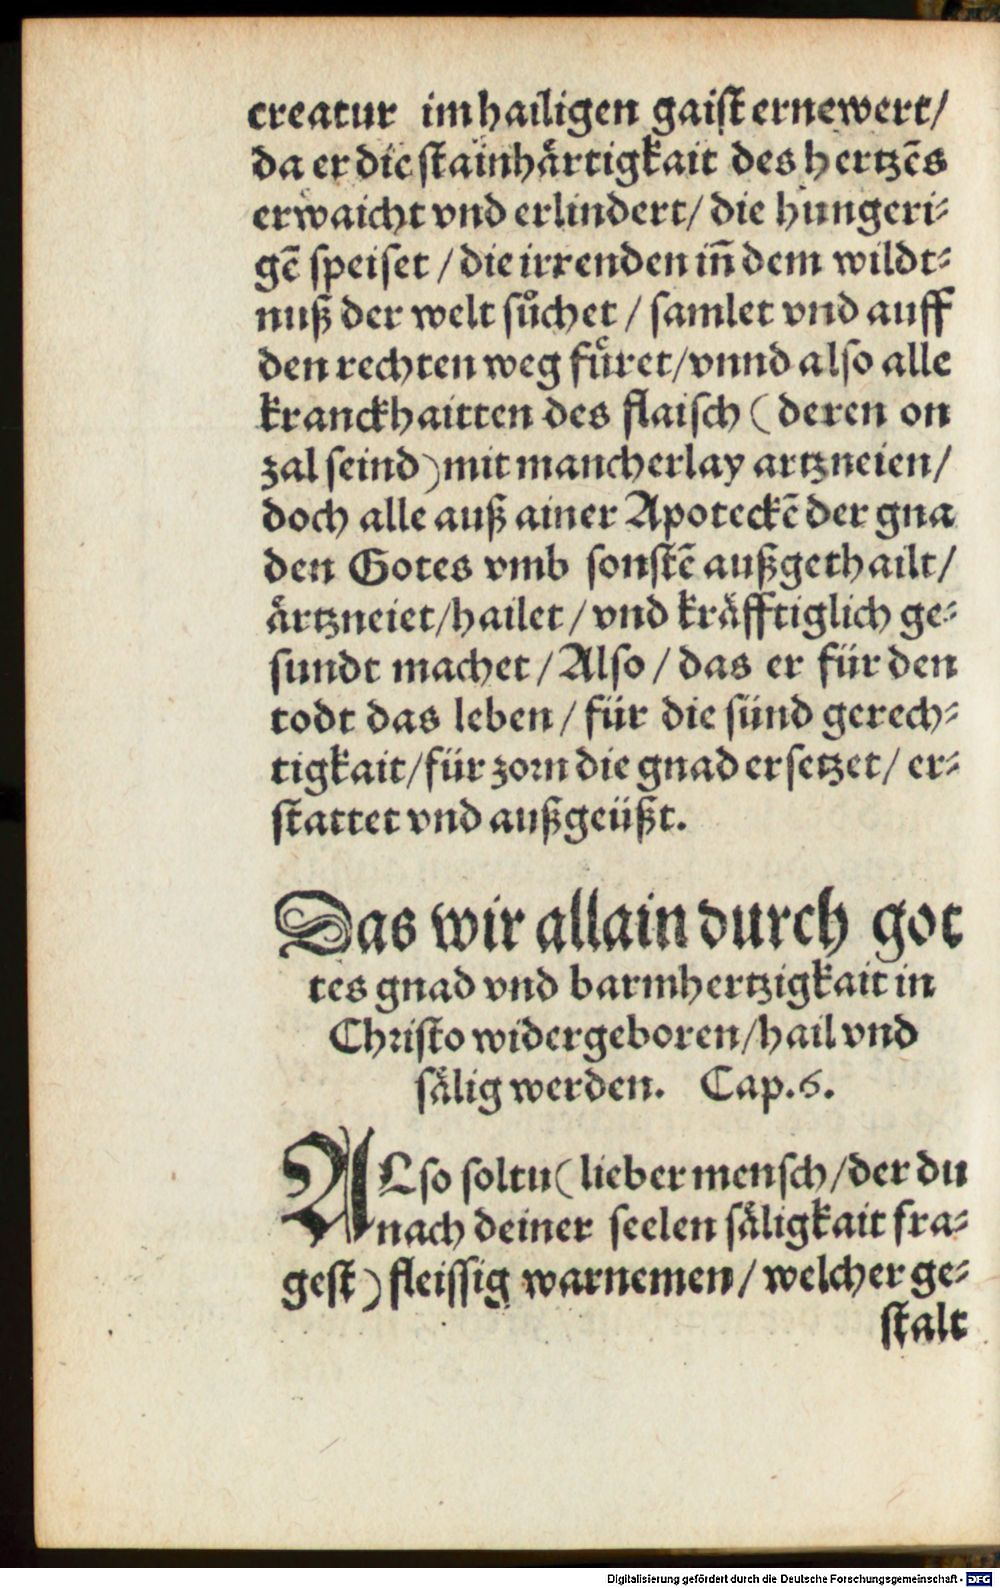 creatur im hailigen gaist ernewert/
da er die stainhärtigkait des hertzēs
erwaicht vnd erlindert/ die hungeri-
gē speiset / die irrenden iñ dem wildt-
nuß der welt sůchet / samlet vnd auff
den rechten weg füͤret/vnnd also alle
kranckhaitten des flaisch ( deren on
zal seind) mit mancherlay artzneien/
doch alle auß ainer Apoteckē der gna
den Gotes vmb sonstē außgethailt/
ärtzneiet/hailet / vnd kräfftiglich ge-
sundt machet / Also / das er für den
todt das leben / für die sünd gerech-
tigkait/für zorn die gnad ersetzet/ er-
stattet vnd außgeüßt.
Das wir allain durch got
tes gnad vnd barmhertzigkait in
Christo widergeboren/hail vnd
sälig werden. Cap.6.
ALso soltu ( lieber mensch /der du
nach deiner seelen säligkait fra-
gest ) fleissig warnemen / welcher ge-
stalt
Digitalisierung gefördert durch die Deutsche Forschungsgemeinschaft - DFG